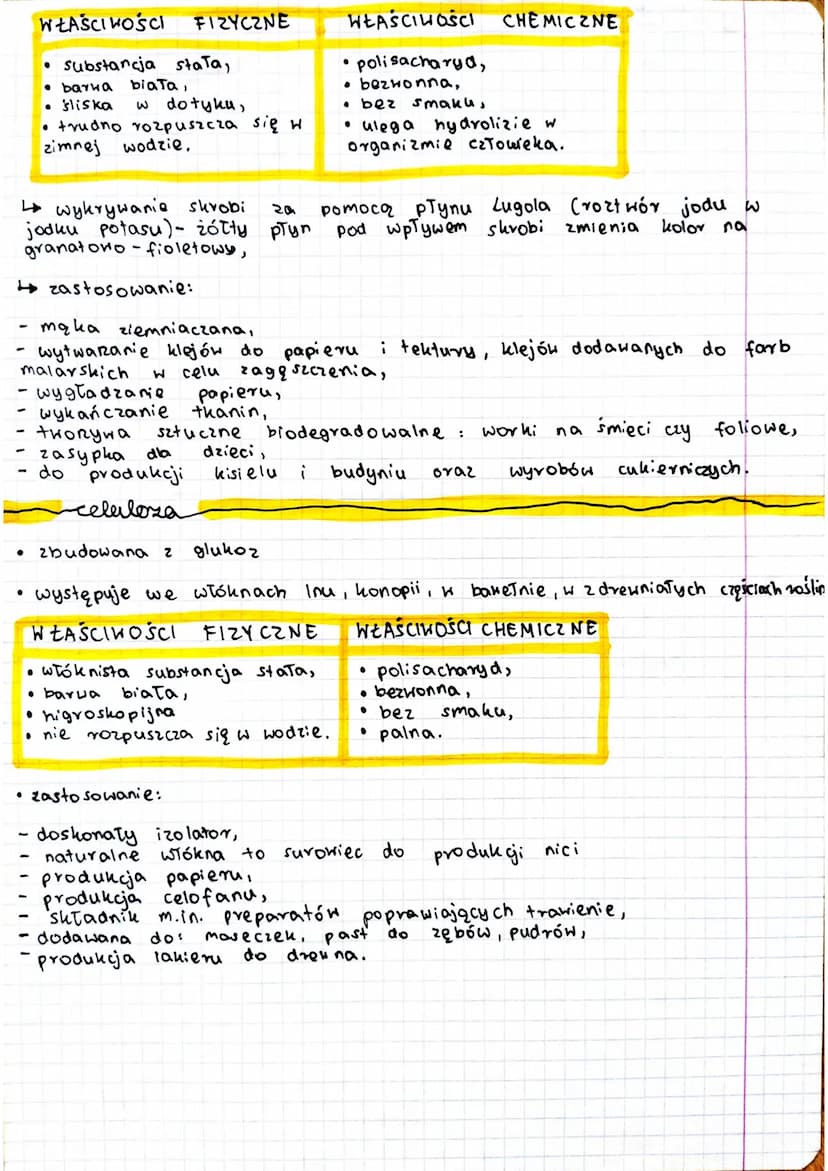 WŁAŚCIWOŚCI FIZYCZNE
• substancja stała,
• barwa biała,
• śliska w dotyku,
• trudno rozpuszcza się w
zimnej wodzie.
WŁAŚCIWOŚCI CHEMICZNE
• polisacharyd,
• bezwonna,
• bez smaku,
• ulega hydrolizie w
organizmie człowieka.
↳ wykrywania skrobi za pomocą płynu Lugola (roztwór jodu w
jodku potasu)- żółty płyn pod wpływem skrobi zmienia kolor na
granatowo-fioletowy,
↳ zastosowanie:
- mąka ziemniaczana,
- wytwarzanie klejów do papieru i tektury, klejów dodawanych do farb
malarskich w celu zagęszczenia,
- wygładzanie papieru,
- wykańczanie tkanin,
- tworzywa sztuczne biodegradowalne: worki na śmieci czy foliowe,
- zasypka dla dzieci,
- do produkcji kisielu i budyniu oraz wyrobów cukierniczych.
celuloza
• zbudowana z glukoz
• występuje we włóknach lnu, konopii, w bawełnie, w zdrewniałych częściach roślin
WŁAŚCIWOŚCI FIZYCZNE
• włóknista substancja stała,
• barwa biała,
• higroskopijna
• nie rozpuszcza się w wodzie.
WŁAŚCIWOŚCI CHEMICZNE
• polisacharyd,
• bezwonna,
• bez smaku,
• palna.
• zastosowanie:
- doskonały izolator,
- naturalne włókna to surowiec do produkcji nici
- produkcja papieru,
- produkcja celofanu,
- składnik m.in. preparatów poprawiających trawienie,
- dodawana do: maseczek, past do zębów, pudrów,
- produkcja lakieru do drewna.